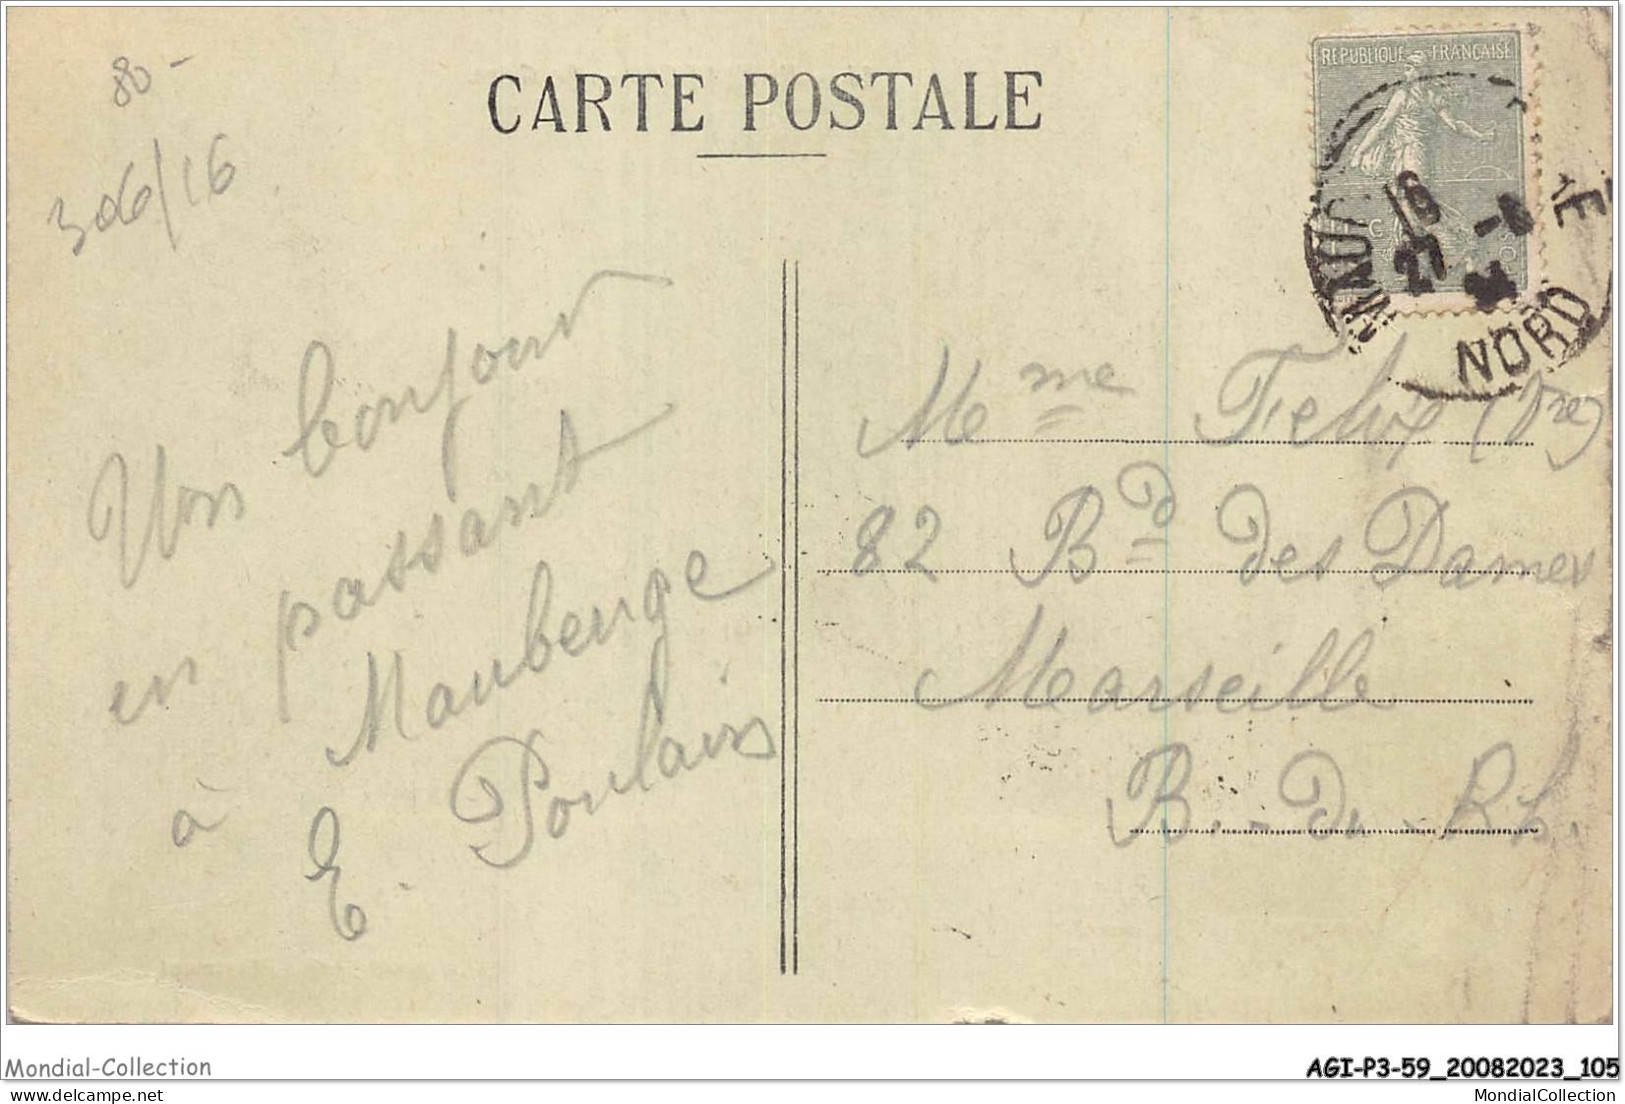 80-
306/16
CARTE POSTALE
REPUBLIQUE FRANCAISE
16
27 -8
NORD
Un bonjour
en passant
à Maubeuge
E. Poulain
Mme Felix (Vve)
82 Bd des Dames
Marseille
B.-du-Rh.
Mondial-Collection
AGI-P3-59_20082023_105
www.delcampe.net
MondialCollection